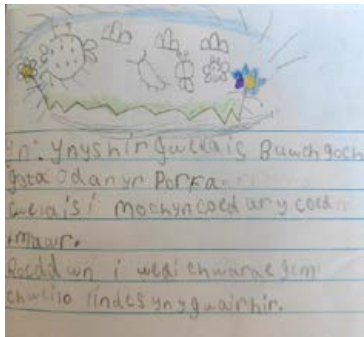 Yn: Ynyshir gwelais Buwch goch
gota Odan yr Porfa
Gwelais i mochyn coed ar y coed
mawr.
Roedd wn i wedi chwarae gem
chwilio lindes yn y gwair hir.